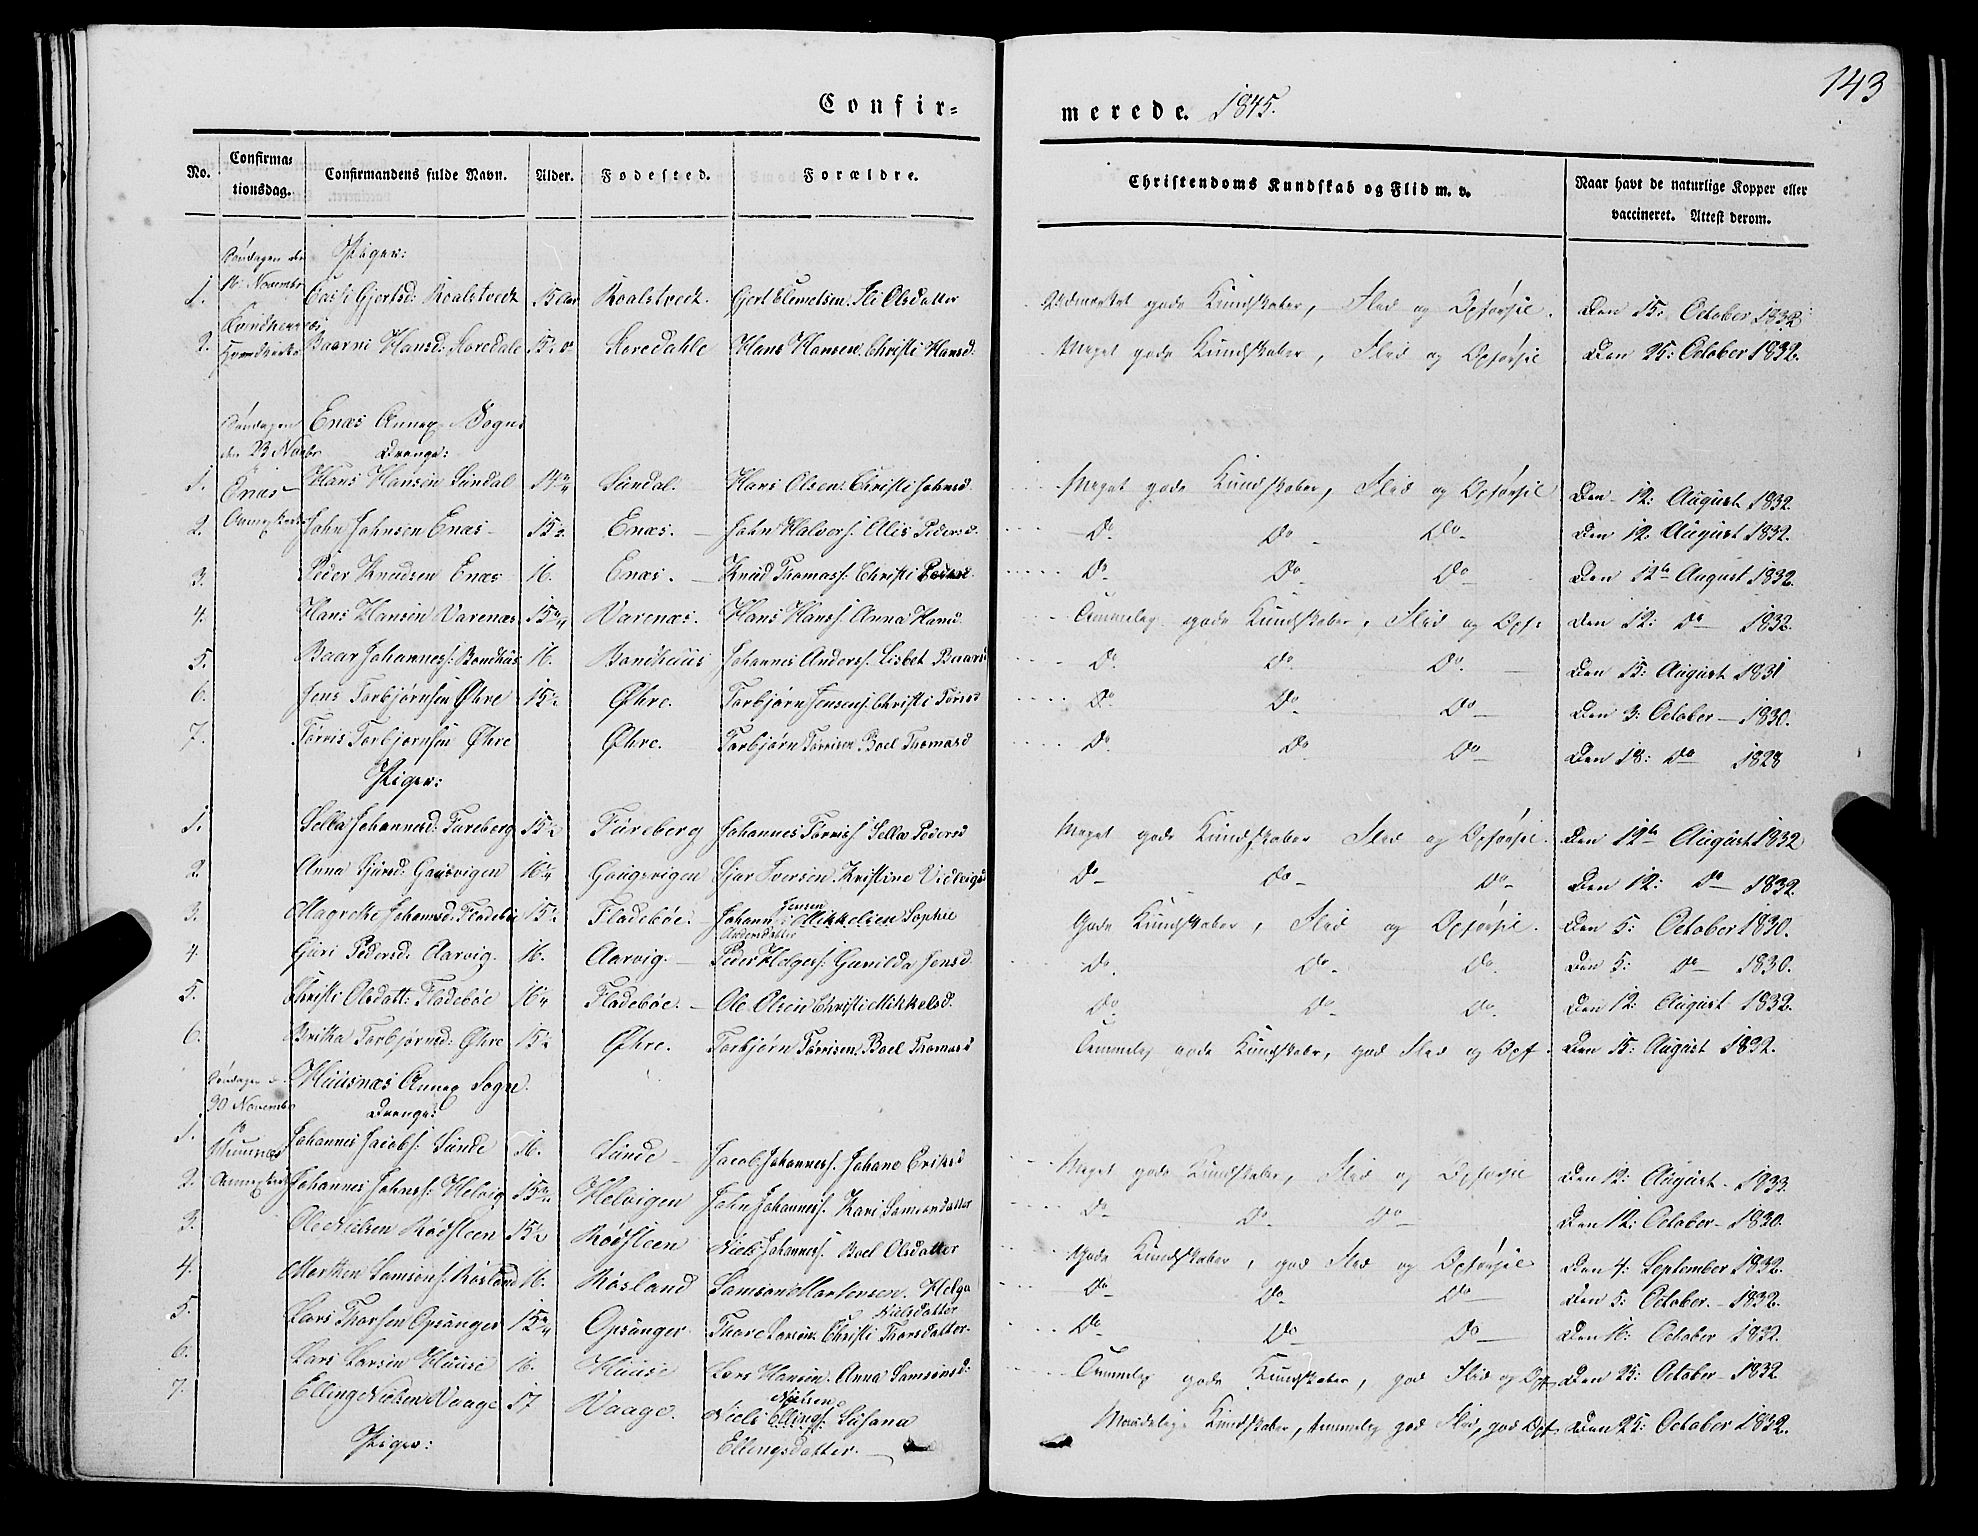 143
Confir= merede. 1845.
No. Confirmationsdag. Confirmandens fulde Navn. Alder. Fødested. Forældre. Christendoms Kundskab og Flid m. v. Naar havt de naturlige Kopper eller vaccineret. Attest derom.
Søndagen den 16 Novembr Piger:
1. Gjertsd: Roalstvedt 15 Aar Roalstvedt. Gjert Clemetsen. Ili Olsdatter Udmerket gode Kundskaber, Flid og Opførsel. Den 15: October 1832
2. Baarni Hansd: Koredale Koredahle Hans Hansen. Christi Hansd: Meget gode Kundskaber, Flid og Opførsel Den 25: October 1832.
Søndagen den 23 Novbr Enæs Annex Sogn
Drenge:
1. Enæs Hans Hansen Sundal 14 Sundal. Hans Olsen. Christi Johnsd. Meget gode Kundskaber, Flid og Opførsel Den 12: August 1832.
2. Annexkirke John Johnsen Enæs 15 Enæs. John Halvors: Alis Pedersd. Do Do Do Den 12. August 1832.
3. Peder Knudsen Enæs 16. Enæs. Knud Thomass: Christi Do Do Do Den 12te August 1832.
4. Hans Hansen Varenæs 15 Varenæs. Hans Hanss: Anna Hansd. Temmelig gode Kundskaber, Flid og Opf: Den 12: Do 1832.
5. Baar Johanness: Bondhus 16. Bondhuus Johannes Anderss: Lisbet Baarsd Do Do Do Den 15: August 1831
6. Jens Torbjørnsen Øhre 15 Øhre. Torbjørn Jensen: Christi Do Do Do Den 3: October 1830.
7. Tørris Torbjørnsen Øhre Øhre. Torbjørn Tørrisen Boel Thomasd Do Do Do Den 18: Do 1828
Piger:
1. Sella Johannesd: Fureberg 15 Fureberg Johannes Tørriss: Sella Pedersd Meget gode Kundskaber Flid og Opførsel. Den 12te August 1832
2 Anna Sjursd: Gausvigen 16 Gaugsvigen Sjur Iversen. Kristine Do Do Do Den 12: Do 1832.
3. Magrethe Johannsd: Fladebøe 15 Fladebøe. Johann Jensen Mikkelsen Sophie Andersdatter Gode Kundskaber, Flid og Opførsel. Den 5: October 1830.
4. Guri Pedersd: Aarvig. 16. Aarvig. Peder Helges: Gunilda Jensd Do. Do. Do. Den 5: Do 1830.
5. Christi Olsdatt: Fladebøe 16 Fladebøe. Ole Olsen Christi Mikkelsd. Do. Do. Do. Den 12: August 1832.
6. Britha Torbjørnsd: Øhre 15 Øhre. Torbjørn Tørrisen. Boel Thomasd Temmelig gode Kundskabr, god Flid og Opf. Den 15: August 1832.
Søndagen d. 30 Novembr Huusnæs Annex Sogn.
Drenge:
1. Huusnæs Johannes Jacobs: Sunde 16. Sunde Jacob Johanness. Johane Eriksd Meget gode Kundskaber, Flid og Opførsel Den 12: August. 1833.
2. Annexkirke Johannes Johnss: Helvig 15 Helvigen John Johanness. Kari Samsonsdatter Do Do. Do Den 12: October 1830.
3. Ole Nielsen Rødsteen 15 Rødsteen Niels Johanness. Boel Olsdatter Gode Kundskaber, god Flid og Opførsel Den 4: September 1832.
4. Morthen Samsons: Røsland 16. Røsland Samson Mortensen. Helga Nielsdatter Do Do Do Den 5: October. 1832.
5. Lars Thorsen Opsanger 15 Opsanger. Thore Larsen. Christi Thorsdatter. Do Do Do Den 11: October 1832.
6. Lars Larsen Huuse 16. Huuse Lars Hansen. Anna Samsonsd: Temmelig gode Kundskaber, god Flid og Opf. Den 25: October 1832
7. Elling Nielsen Vaage 17 Vaage. Niels Ellings: Susana Ellingsdatter. Maadelige Kundskaber, temmelig god Flid, god Opf. Den 25: October 1832.
Piger: